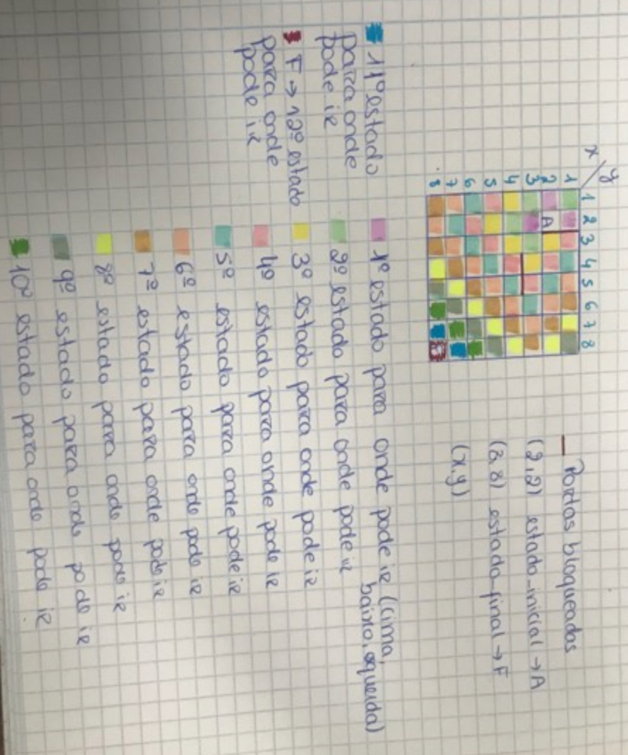 x / y 1 2 3 4 5 6 7 8
1
2 A
3
4
5
6
7
8 F
— Portas bloqueadas
(2,2) estado_inicial → A
(8,8) estado_final → F
(x,y)
1º estado para onde pode ir (cima,
baixo, esquerda)
2º estado para onde pode ir
3º estado para onde pode ir
4º estado para onde pode ir
5º estado para onde pode ir
6º estado para onde pode ir
7º estado para onde pode ir
8º estado para onde pode ir
9º estado para onde pode ir
10º estado para onde pode ir
11º estado
para onde
pode ir
F → 12º estado
para onde
pode ir